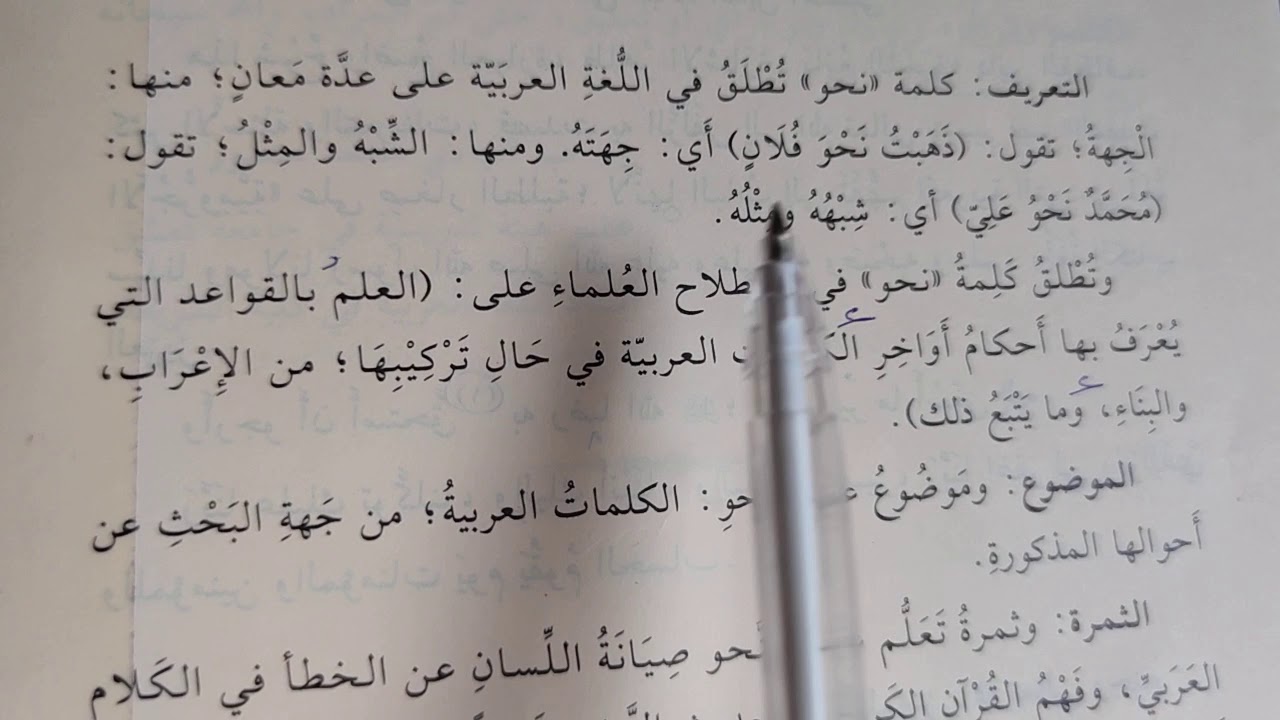 التعريف: كلمة «نحو» تُطْلَقُ في اللُّغةِ العربَيّة على عدَّة مَعانٍ؛ منها:
الْجِهةُ؛ تقول: (ذَهَبْتُ نَحْوَ فُلَانٍ) أَي: جِهَتَهُ. ومنها: الشِّبْهُ والمِثْلُ؛ تقول:
(مُحَمَّدٌ نَحْوُ عَلِيّ) أي: شِبْهُهُ ومِثْلُهُ.
وتُطْلقُ كَلِمةُ «نحو» في العُلماءِ على: (العلم بالقواعد التي
يُعْرَفُ بها أَحكامُ أَوَاخِرِ العربيّة في حَالِ تَرْكِيْبِهَا؛ من الإِعْرَابِ،
والبِنَاءِ، وما يَتْبَعُ ذلك).
الموضوع: ومَوضُوعُ الكلماتُ العربيةُ؛ من جَهةِ البَحْثِ عن
أَحوالها المذكورةِ.
الثمرة: وثمرةُ تَعَلُّم صِيَانَةُ اللِّسانِ عن الخطأ في الكَلام
العَرَبيِّ، وفَهْمُ القُرْآن